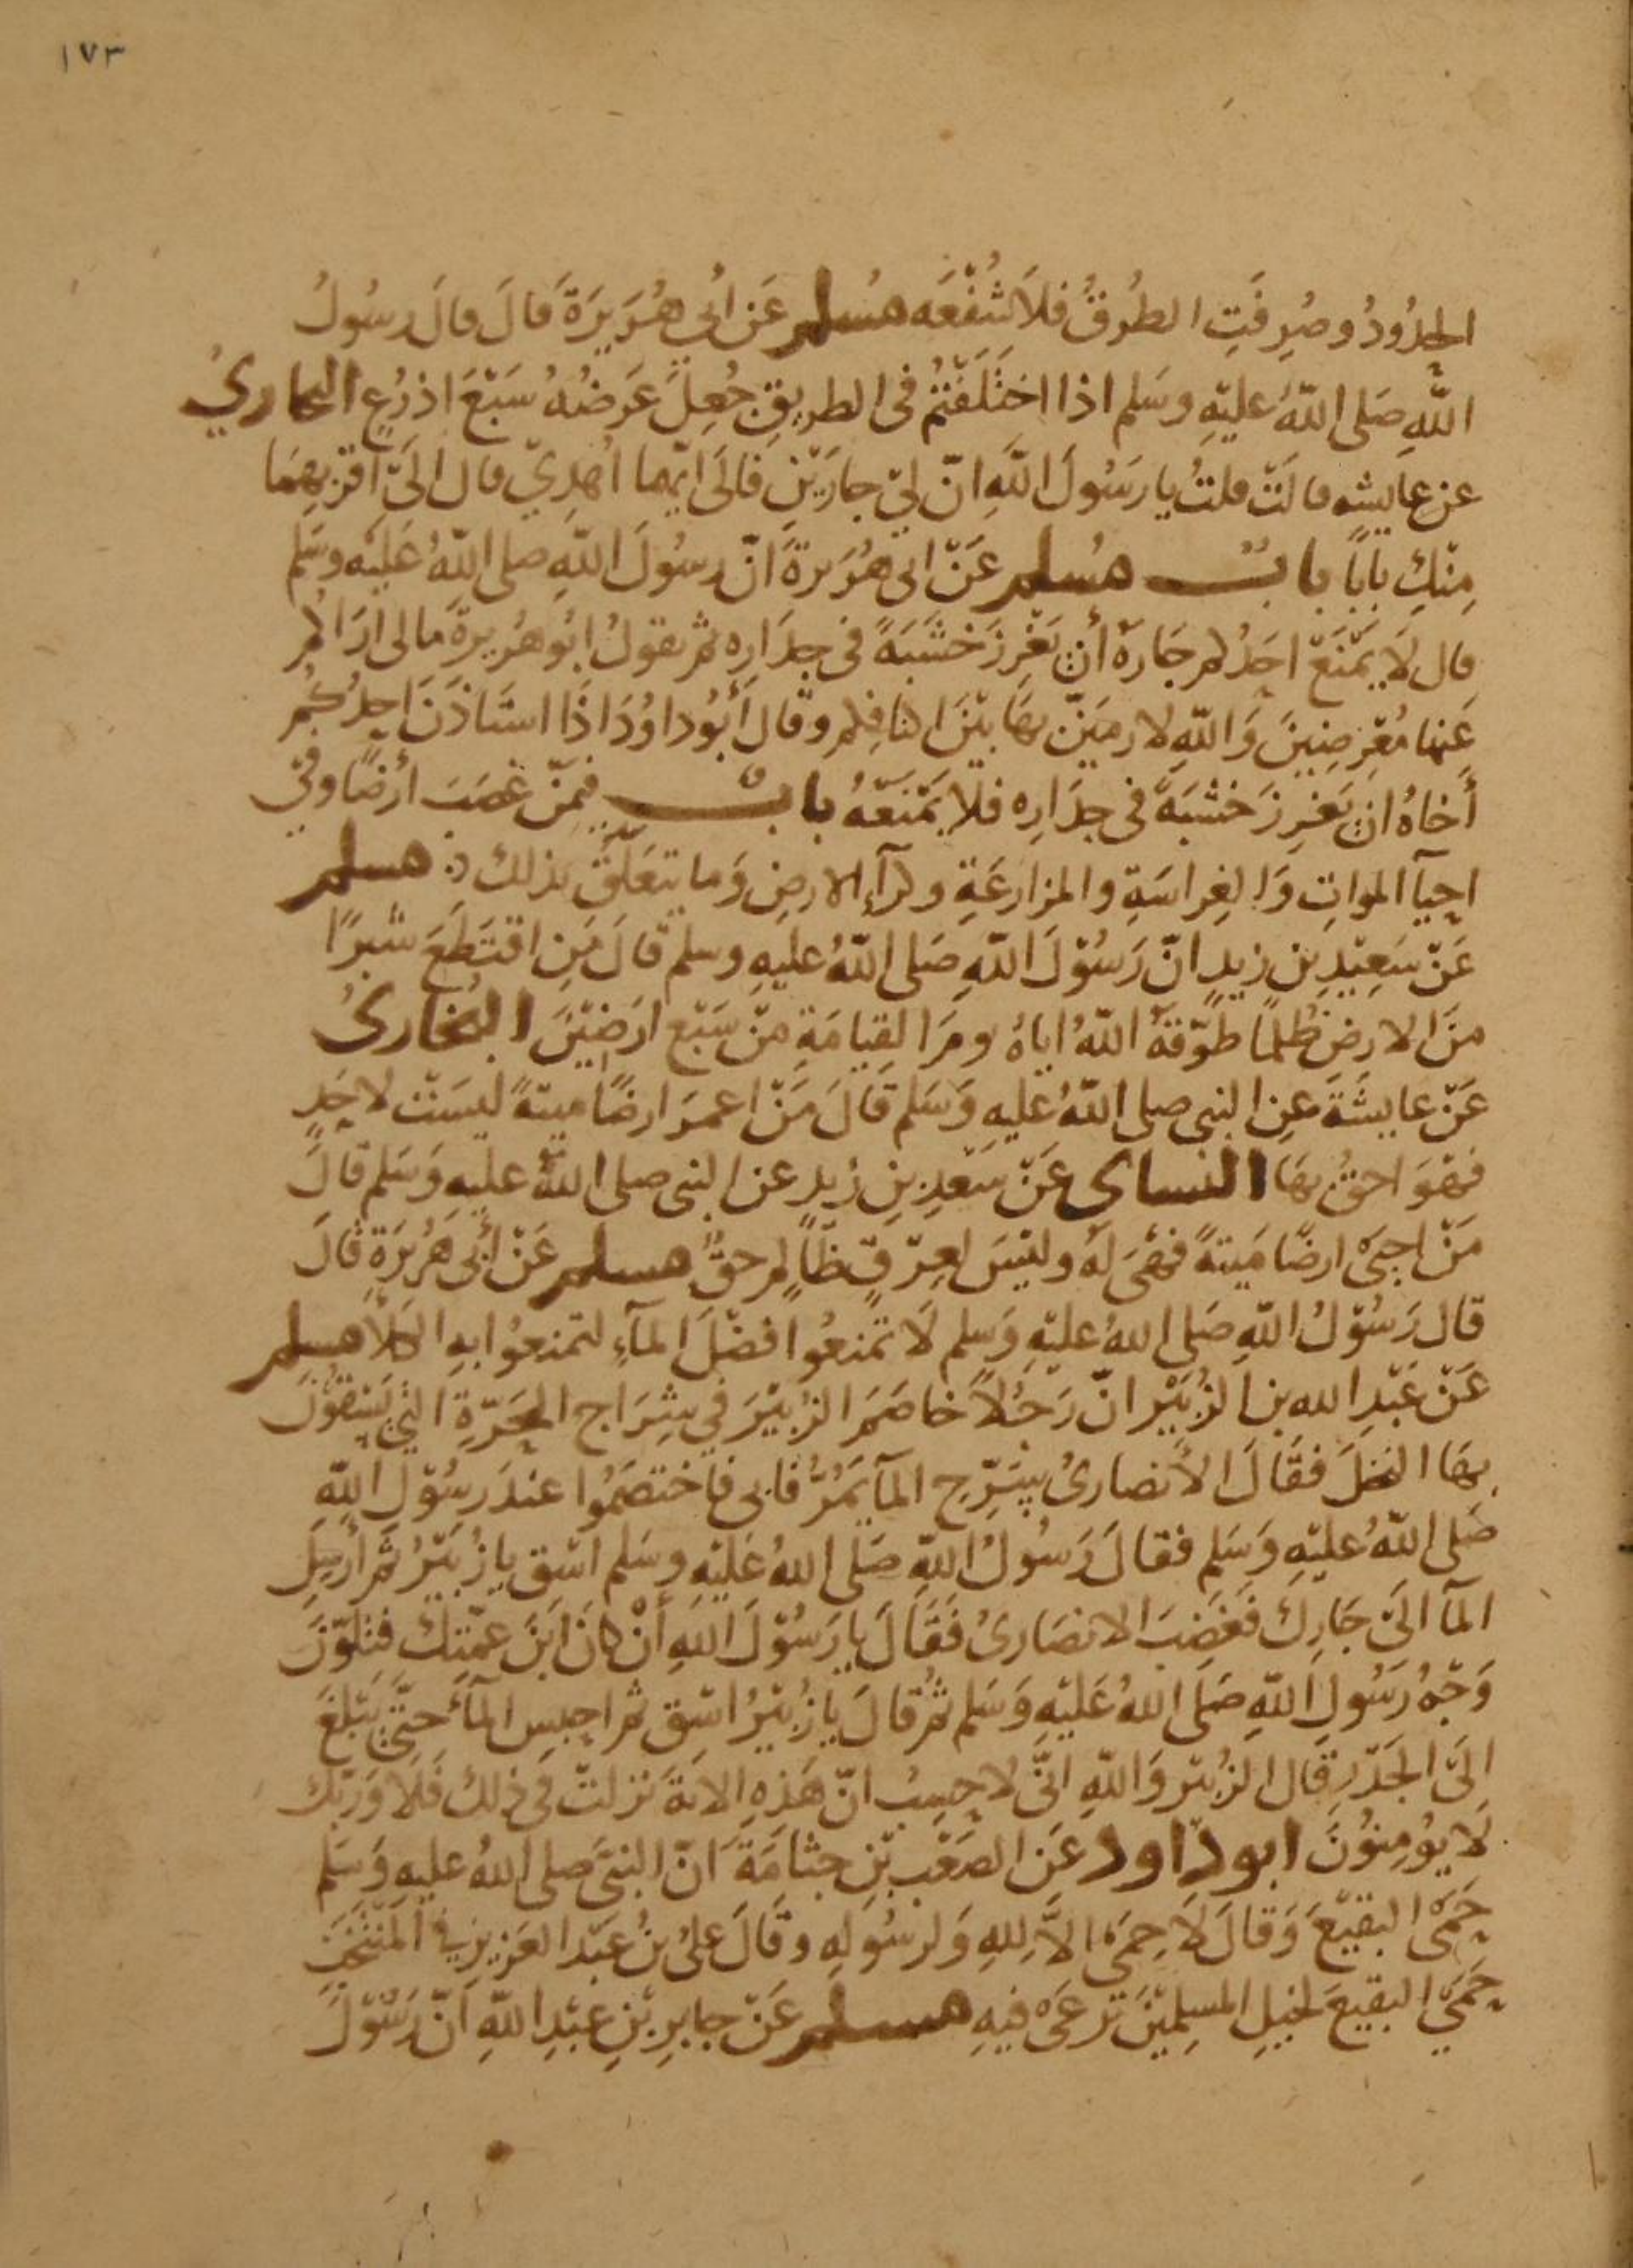 ١٧٣
الحدُودُ وصُرِفَتِ الطُرقُ فلاَ شُفْعَه مُسلم عَن أبي هُرَيرَةَ قالَ قالَ رسُولُ
اللّهِ صَلى اللّهُ عليهِ وسَلم اذا اختَلَفتُم في الطريقِ جُعِلَ عَرضُهُ سَبْعَ اذرُعٍ البخاريُ
عن عايشه قالَتْ قلتُ يا رسُولَ اللّهِ انّ لي جارَيْنِ فالَى ايّهما اُهدِيّ قال الَى اقربِهِمَا
مِنْكِ بابًا بابٌ مُسلم عَنْ ابى هُرَيرةَ انّ رسُولَ اللّهِ صلى اللّهُ عَليه وسَلم
قال لَا يَمْنَعْ احَدُكم جَارَهُ أن يَغْرِزَ خَشَبَةً في جدَارِه ثم يقولُ ابُو هُريرةَ مالى ارَاكُم
عَنها مُعْرِضينَ وَاللّهِ لارميَنّ بهَا بيْنَ اكتافِكم وقالَ أبُو داوُدَ اذَا استاذَنَ احدُكُم
أخاهُ ان يَغرِزَ خشبَةً في جدَارِه فلا يَمْنَعْهُ بابٌ فيمَنْ غصَبَ ارضًا وفي
احيآ المواتِ وَالغِراسَةِ والمزارعَةِ وكرآءِ الارضِ وَما يتعَلّقُ بذلك مسلم
عَنْ سَعِيْدِ بن زيدٍ انّ رَسُوْلَ اللّهِ صَلى اللّهُ عليهِ وسلم قالَ مَنِ اقتَطَعَ شبرًا
منَ الارضِ ظُلمًا طوّقَهُ اللّهُ اياهُ يومَ القِيامَةِ منْ سَبْعِ ارَضِيْنَ البُخارىُ
عَنْ عايشَةَ عنِ النبى صلى اللّهُ عليهِ وَسَلم قَالَ مَنْ اعمَرَ ارضًا ميتةً ليسَتْ لاحَدٍ
فهْوَ احقُ بهَا النسائ عَنْ سَعْدِ بنِ زيدٍ عن النبى صلى اللّهُ عليهِ وَسَلم قالَ
مَنْ احيَى ارضًا مَيتةً فهْىَ لَهُ وليْسَ لعِرْقٍ ظَالمٍ حقٌ مسلم عَنْ أبى هُريرَةَ قالَ
قال رَسُوْلُ اللّهِ صَلى اللهُ عليْهِ وَسلم لَا تمْنعُوا فضْلَ المآءِ لتمنعُوا بهِ الكلأ مسلم
عَنْ عَبْدِ الله بن الزُبَيْرِ انّ رَجُلاً خاصَمَ الزبيْرَ في شِرَاجِ الحَرّةِ التي يَسْقُوْنَ
بهَا النخلَ فقَالَ الأنصارىُ سَرّحِ المآ يَمُرُّ فابى فاختصَمُوا عندَ رسُوْلِ اللّهِ
صَلى اللّهُ عليْهِ وَسَلم فقالَ رَسُولُ اللّهِ صَلى اللهُ عَليْهِ وسَلم اسْقِ يا زُبَيْرُ ثم أرسِلِ
المآ الَى جَارِكَ فغَضِبَ الانصَارىُ فَقَالَ يا رَسُوْلَ اللهِ أنْ كانَ ابَنَ عمّتِكَ فتلوّنَ
وَجْهُ رَسُولِ اللّهِ صَلَى اللهُ عَليْهِ وَسَلم ثُمّ قالَ يا زُبيْرُ اسْقِ ثم احبسِ المآءَ حتّى يَبْلغَ
الَى الجَدْرِ قال الزُبيْر وَاللّهِ انّى لاحسِبُ انّ هَذهِ الايَةَ نزلتْ في ذلك فَلا وَربّكَ
لَا يُؤمِنُوْنَ ابو داود عَن الصَعْبِ بْنِ جثامَةَ انّ النبىَّ صلى اللهُ عليهِ وَسَلم
حَمَى البقيْعَ وَقالَ لَا حِمَى الاّ لِلهِ وَلرسُولِهِ وقالَ علىُ بنُ عبْد العَزيزِ في المنتخَبِ
حَمَى البقيعَ لخيلِ المسلِميْنَ تَرعَى فيهِ مسلم عَنْ جابِرِ بْنِ عبْدِ اللّهِ انّ رَسُوْلَ